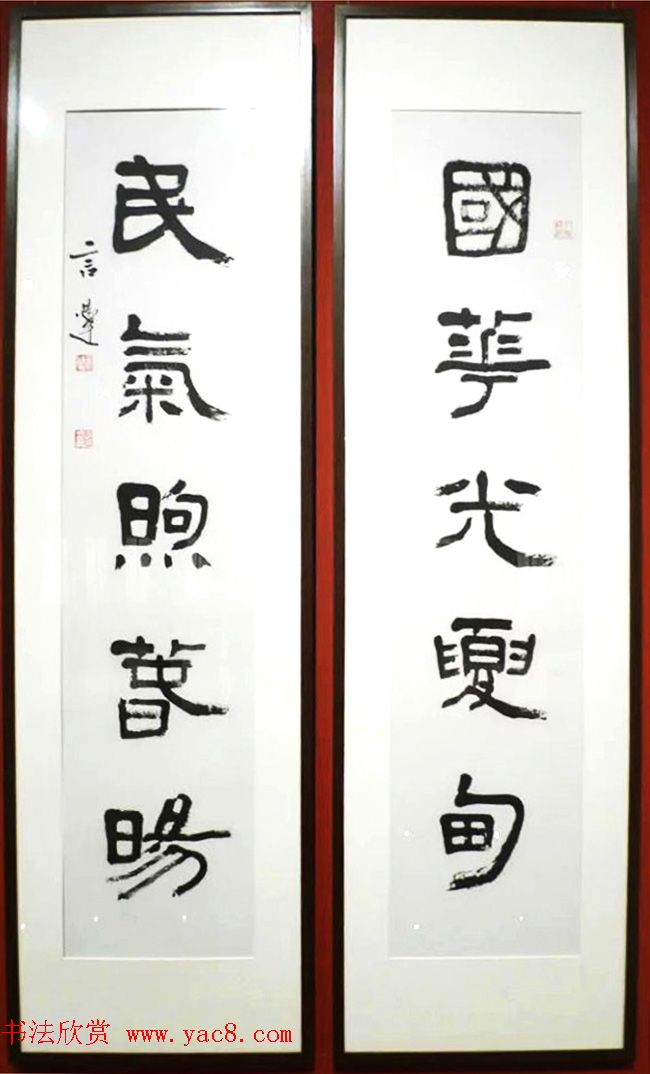 國華光夏甸
民氣煦春暘
言恭達
书法欣赏 www.yac8.com